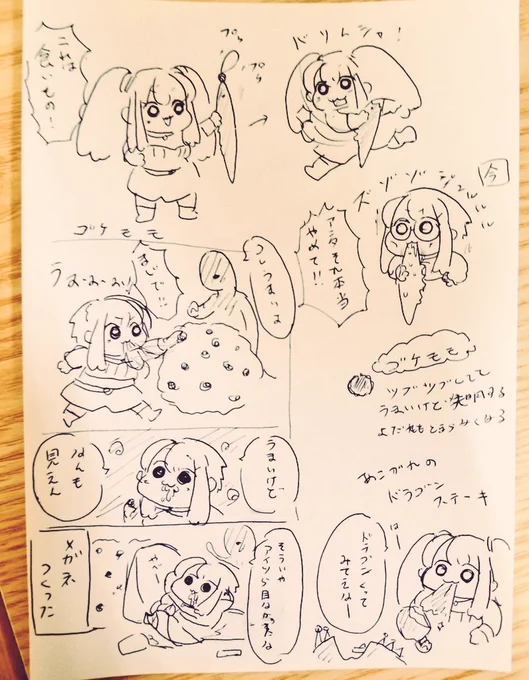 これは
食いもの！
プラ
プラ
バリムシャ！
今
ズゾゾゾジュルルルル
アニタそれ本当
やめて！！
ゴケモモ
うおーおーおー
まじで！！
コレうまいよ
ゴケモモ
ツブツブしてて
うまいけど失明する
よだれもとまらなくなる
うまいけど
なんも
見えん
あこがれの
ドラゴン
ステーキ
そういや
アイツら目なかったな
メガネ
つくった
はー
ドラゴンくって
みてえなー